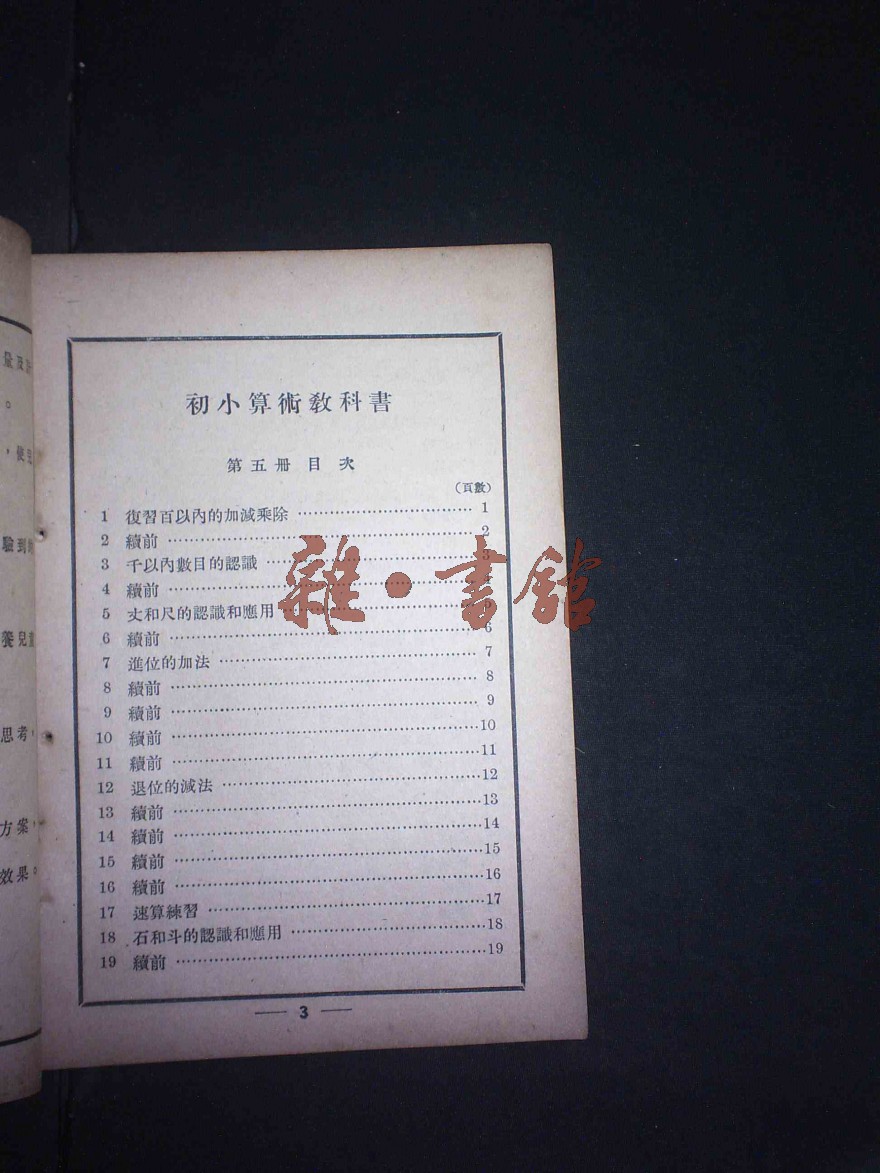 初小算術教科書
第五冊 目 次
(頁數)
1 復習百以內的加減乘除 1
2 續前 2
3 千以內數目的認識 3
4 續前
5 丈和尺的認識和應用
6 續前 6
7 進位的加法 7
8 續前 8
9 續前 9
10 續前 10
11 續前 11
12 退位的減法 12
13 續前 13
14 續前 14
15 續前 15
16 續前 16
17 速算練習 17
18 石和斗的認識和應用 18
19 續前 19
— 3 —
雜·書館
。
驗到
養兒
思考,
方案,
效果。